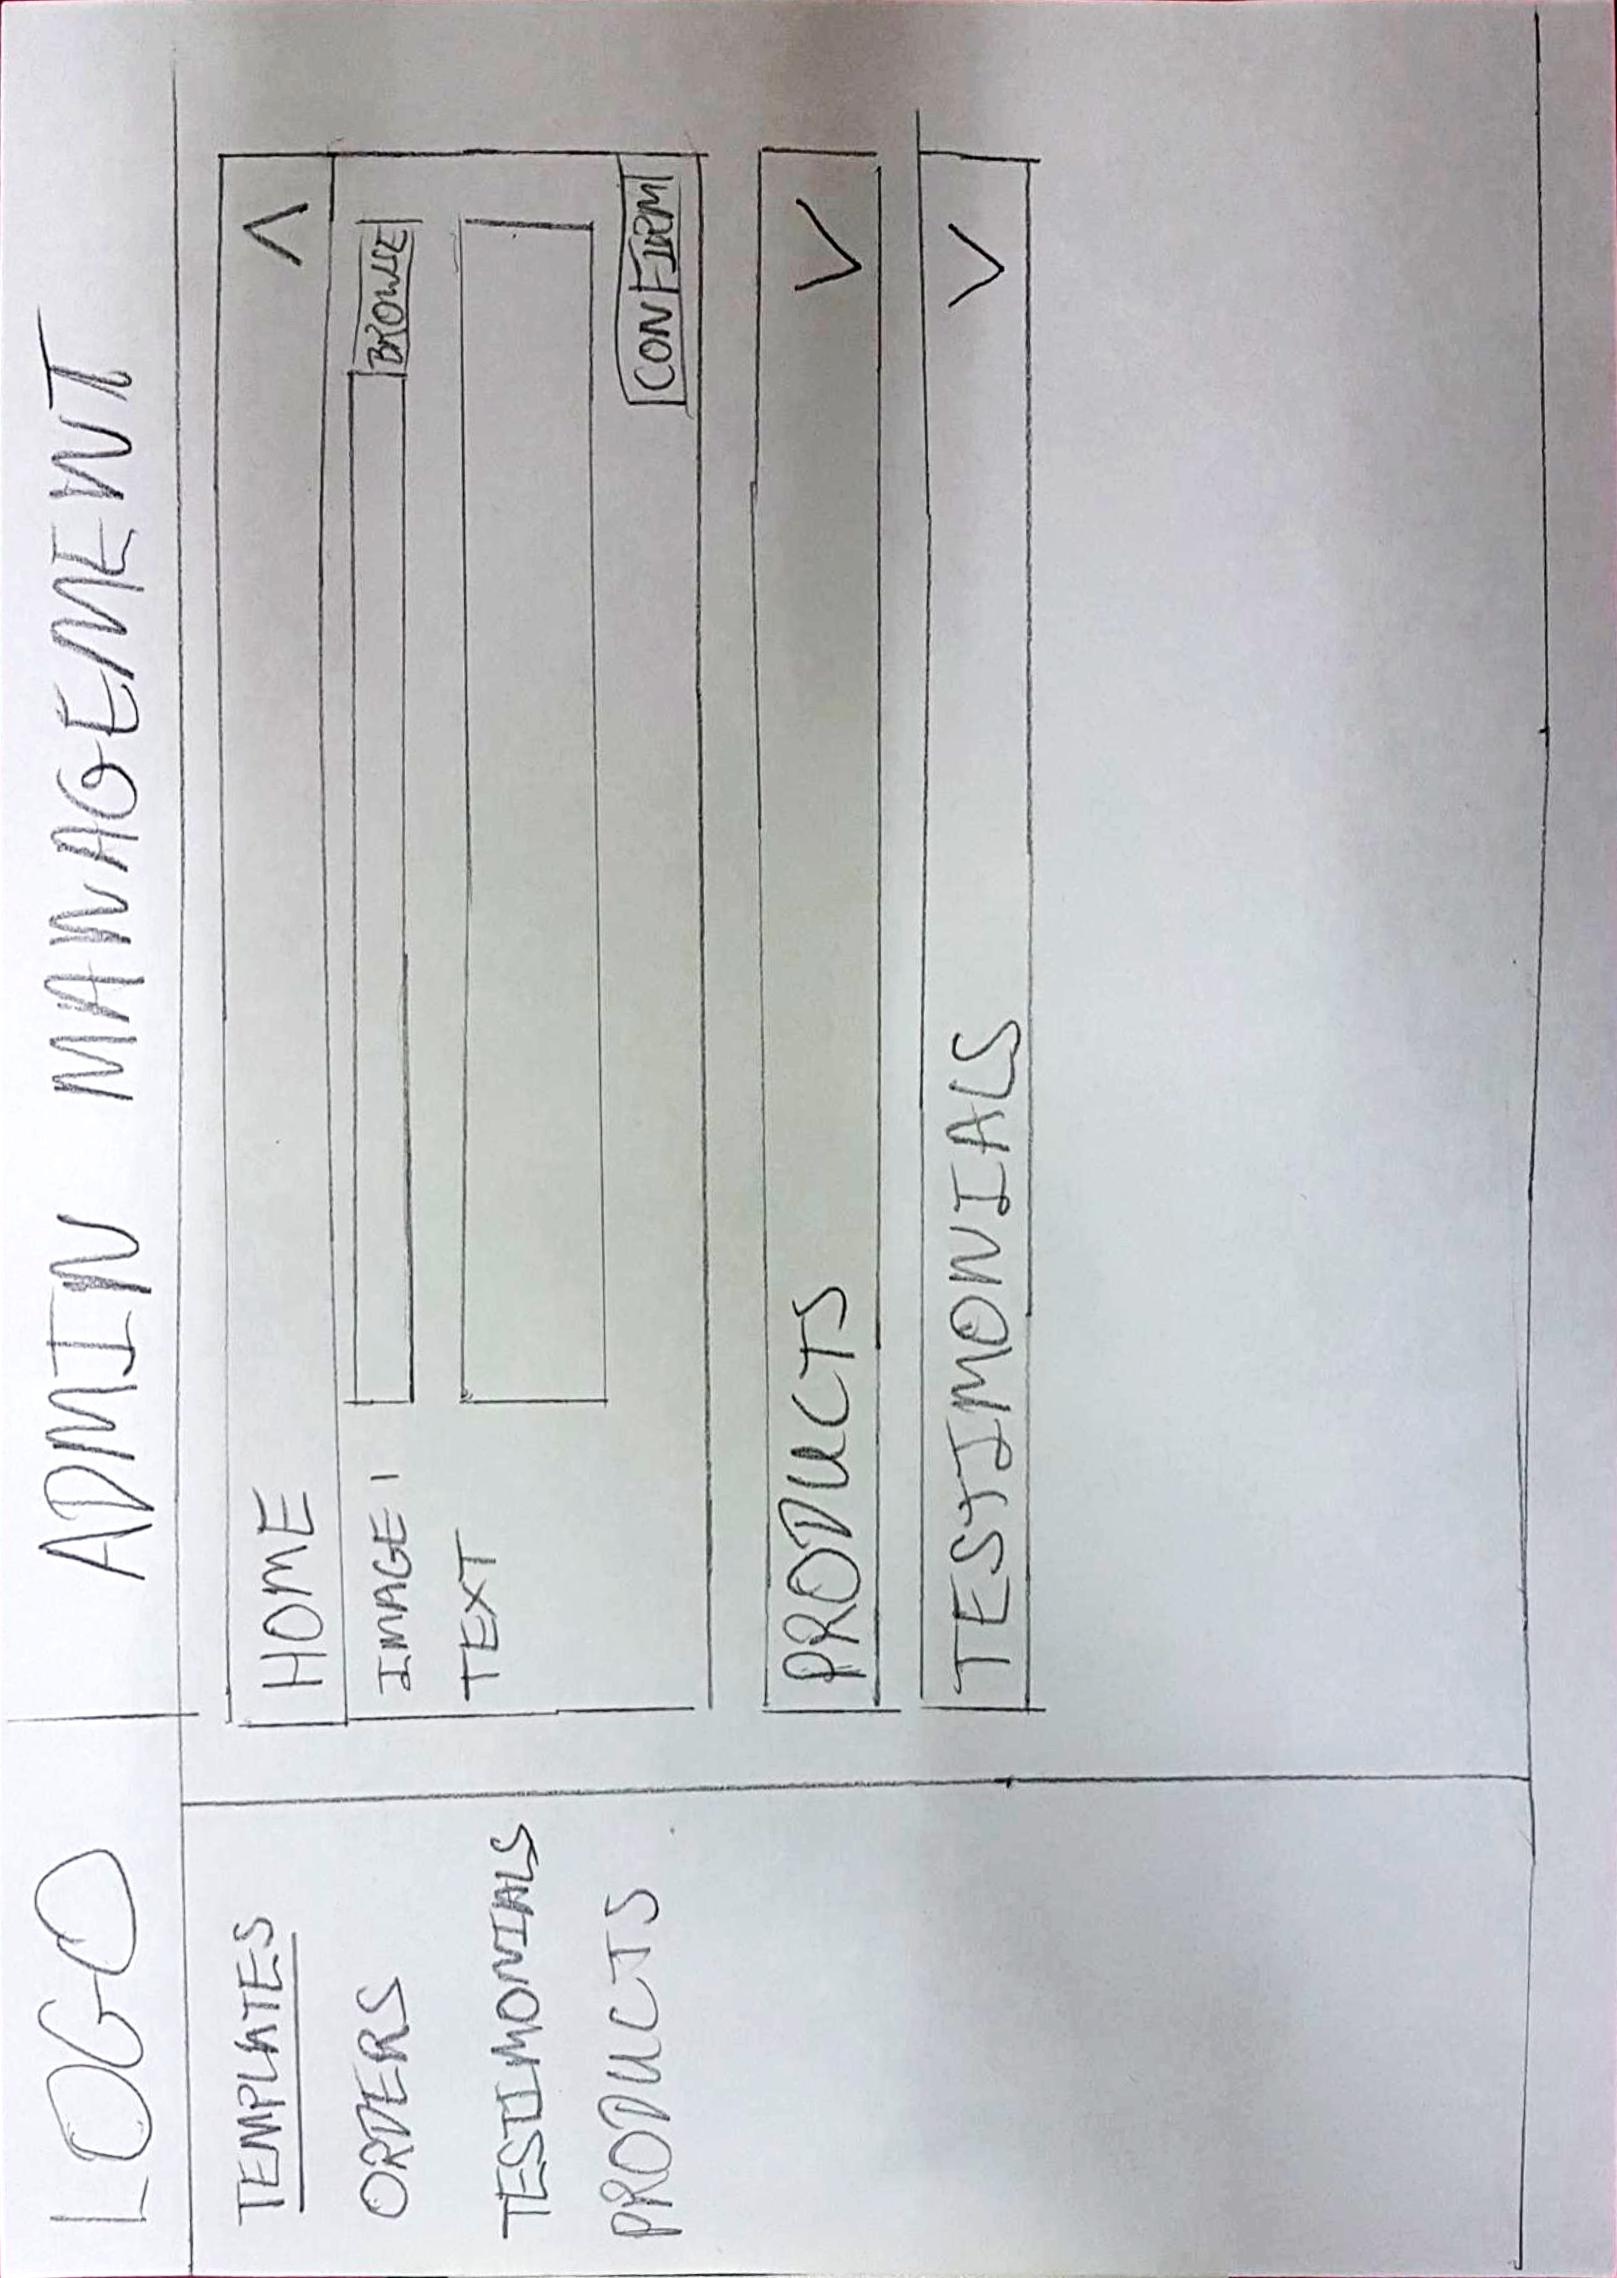 LOGO
ADMIN MANAGEMENT
TEMPLATES
ORDERS
TESTIMONIALS
PRODUCTS
HOME
IMAGE 1
BROWSE
TEXT
CONFIRM
PRODUCTS
TESTIMONIALS